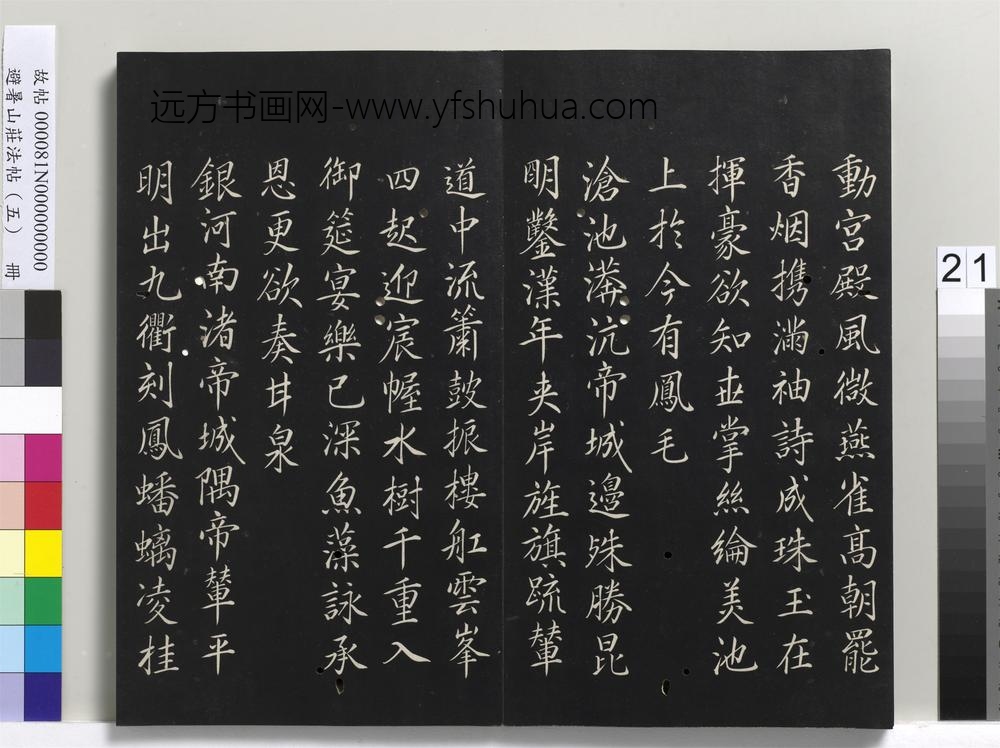 動宮殿風微燕雀高朝罷
香烟携滿袖詩成珠玉在
揮豪欲知世掌絲綸美池
上於今有鳳毛
滄池漭沆帝城邊殊勝昆
明鑿漢年夹岸旌旗疏輦
道中流簫鼓振樓舡雲峯
四起迎宸幄水樹千重入
御筵宴樂已深魚藻詠承
恩更欲奏甘泉
銀河南渚帝城隅帝輦平
明出九衢刻鳳蟠螭凌桂
远方书画网-www.yfshuhua.com
故帖 000081N000000000
避暑山莊法帖（五） 冊
21